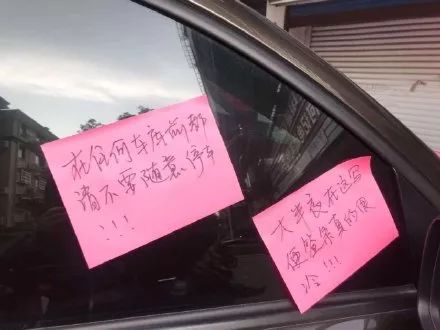 在任何车库前都
请不要随意停车
!!!
大半夜在这写
便签条真的很
冷!!!